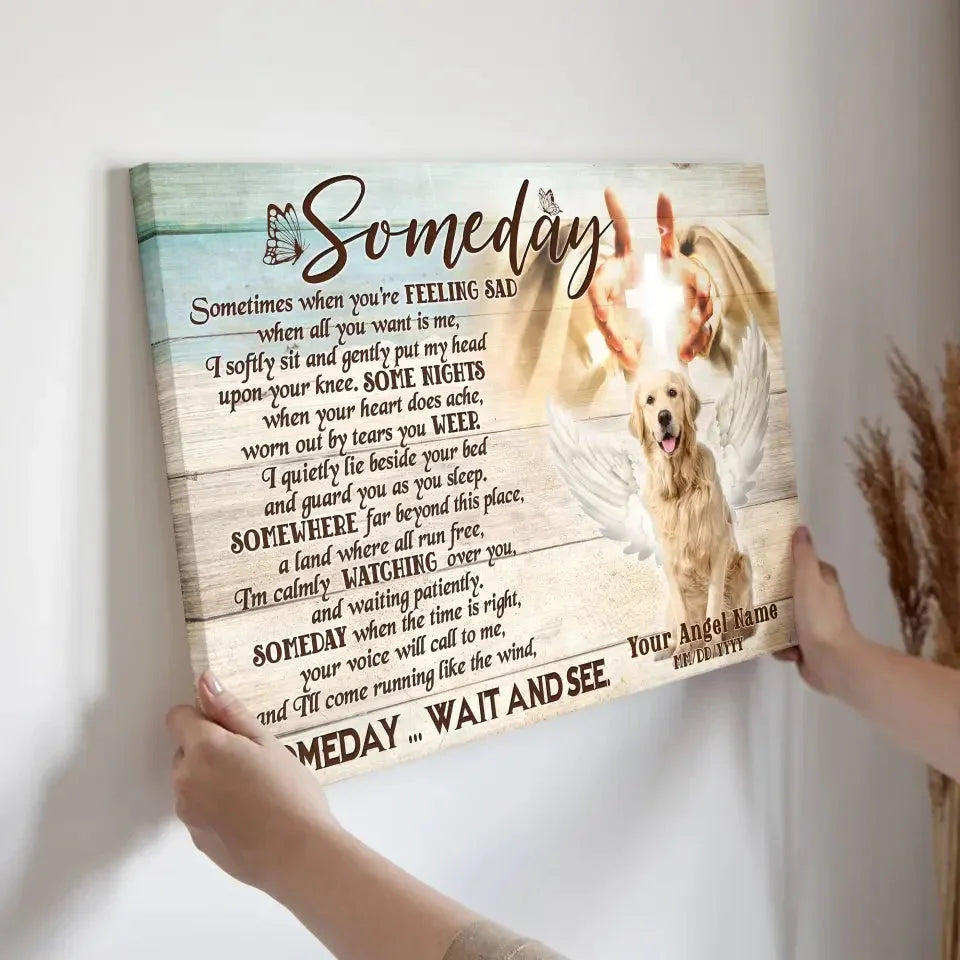 Someday
Sometimes when you're FEELING SAD
when all you want is me,
I softly sit and gently put my head
upon your knee. SOME NIGHTS
when your heart does ache,
worn out by tears you WEEP.
I quietly lie beside your bed
and guard you as you sleep.
SOMEWHERE far beyond this place,
a land where all run free,
I'm calmly WATCHING over you,
and waiting patiently.
SOMEDAY when the time is right,
your voice will call to me,
and I'll come running like the wind,
OMEDAY ... WAIT AND SEE.
Your Angel Name
MM/DD/YYYY